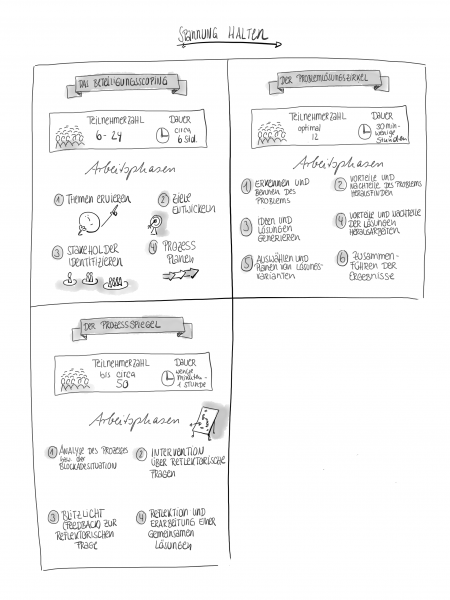 SPANNUNG HALTEN
DAS BETEILIGUNGSSCOPING
TEILNEHMERZAHL
6-24
DAUER
CIRCA
6 Std.
Arbeitsphasen
1 THEMEN ERUIEREN
2 ZIELE
ENTWICKELN
3 STAKEHOLDER
IDENTIFIZIEREN
4 PROZESS
PLANEN
DER PROBLEMLÖSUNGSZIRKEL
TEILNEHMERZAHL
optimal
12
DAUER
30 min-
wenige
Stunden
Arbeitsphasen
1 ERKENNEN UND
BENNEN DES
PROBLEMS
2 VORTEILE UND
NACHTEILE DES PROBLEMS
HERAUSFINDEN
3 IDEEN UND
LÖSUNGEN
GENERIEREN
4 VORTEILE UND NACHTEILE
DER LÖSUNGEN
HERAUSARBEITEN
5 AUSWÄHLEN UND
PLANEN VON LÖSUNGS-
VARIANTEN
6 ZUSAMMEN-
FÜHREN DER
ERGEBNISSE
DER PROZESSSPIEGEL
TEILNEHMERZAHL
bis circa
50
DAUER
WENIGE
MINUTEN-
1 STUNDE
Arbeitsphasen
1 ANALYSE DES PROZESSES
bzw. der
BLOCKADESITUATION
2 INTERVENTION
ÜBER REFLEKTORISCHE
FRAGEN
3 BLITZLICHT
(FEEDBACK) ZUR
REFLEKTORISCHEN
FRAGE
4 REFLEKTION UND
ERARBEITUNG EINER
GEMEINSAMEN
LÖSUNGEN